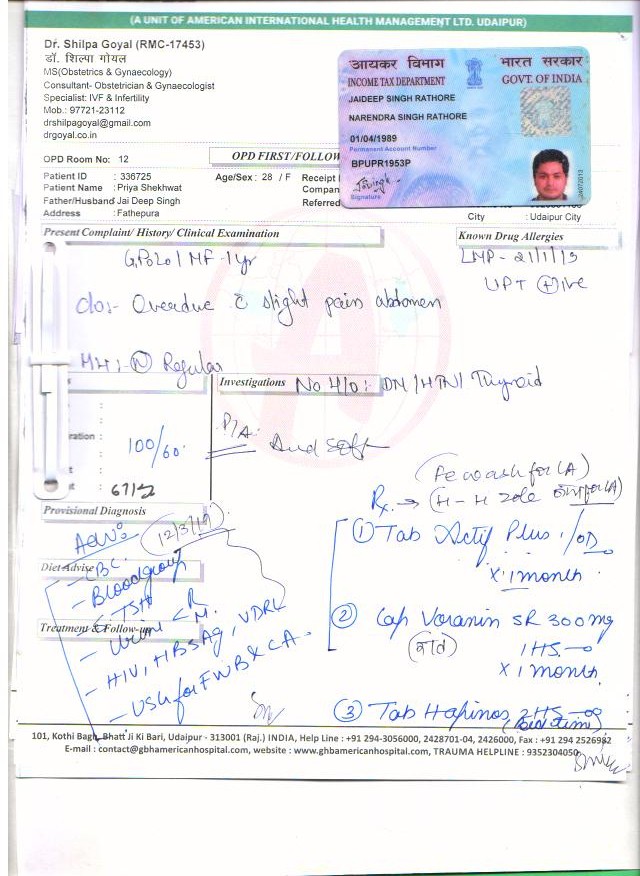 (A UNIT OF AMERICAN INTERNATIONAL HEALTH MANAGEMENT LTD. UDAIPUR)
Dr. Shilpa Goyal (RMC-17453)
डॉ. शिल्पा गोयल
MS(Obstetrics & Gynaecology)
Consultant- Obstetrician & Gynaecologist
Specialist: IVF & Infertility
Mob.: 97721-23112
drshilpagoyal@gmail.com
drgoyal.co.in
आयकर विभाग भारत सरकार
INCOME TAX DEPARTMENT GOVT. OF INDIA
JAIDEEP SINGH RATHORE
NARENDRA SINGH RATHORE
01/04/1989
Permanent Account Number
BPUPR1953P
Signature
24072013
OPD Room No: 12 OPD FIRST/FOLLOW
Patient ID : 336725 Age/Sex: 28 / F Receipt
Patient Name : Priya Shekhwat Compan
Father/Husband Jai Deep Singh Referred
Address : Fathepura City : Udaipur City
Present Complaint/ History/ Clinical Examination Known Drug Allergies
MF - 1yr LMP - 21/1/19
UPT +ive
c/o:- Overdue c slight pain abdomen
MH:- N Regular
Investigations No H/O: DM/HTN/Thyroid
P/A: Soft
100/60
Provisional Diagnosis
Adv: 12/3/19
Rx.
(1) Tab Actif Plus 1/OD
x 1 month
Diet Advise
- CBC
- Blood group
- TSH
- Urine R M.
Treatment & Follow-up
- HIV, HBsAg, VDRL
- USG for FWB & CA.
(2) Cap SR 300mg
1HS
x 1 month
(3) Tab 2HS
(Bed time)
101, Kothi Bagh, Bhatt Ji Ki Bari, Udaipur - 313001 (Raj.) INDIA, Help Line : +91 294-3056000, 2428701-04, 2426000, Fax : +91 294 2526982
E-mail : contact@gbhamericanhospital.com, website : www.gbhamericanhospital.com, TRAUMA HELPLINE : 9352304050